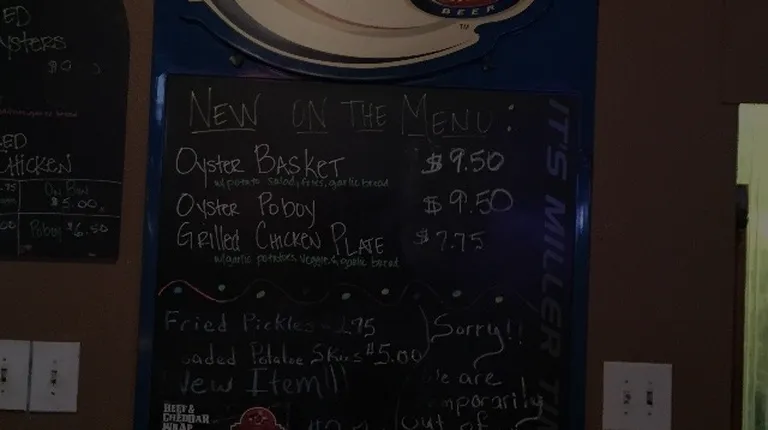 BEER
TM
NEW ON THE MENU:
OYSTER BASKET $9.50
w/potato salad, fries, garlic bread
OYSTER POBOY $9.50
GRILLED CHICKEN PLATE $7.75
w/garlic potatoes, veggies, garlic bread
Fried Pickles
Potatoe Skins $5.00
New Item!!
BEEF &
CHEDDAR
WRAP
Sorry!!
are
out of
IT'S MILLER
CHICKEN
ON BUN
$5.00
Poboy $6.50